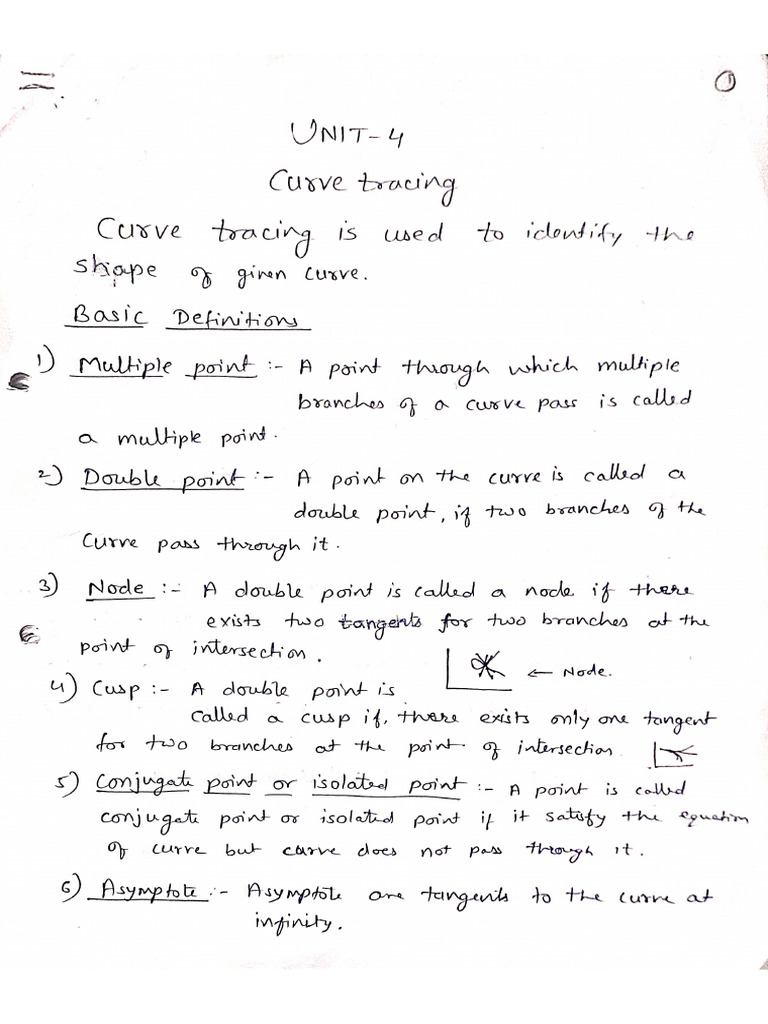 ①
UNIT-4
Curve tracing
Curve tracing is used to identify the
shape of given curve.
Basic Definitions
1) Multiple point :- A point through which multiple
branches of a curve pass is called
a multiple point.
2) Double point :- A point on the curve is called a
double point, if two branches of the
curve pass through it.
3) Node :- A double point is called a node if there
exists two tangents for two branches at the
point of intersection.
← Node.
4) Cusp :- A double point is
called a cusp if, there exists only one tangent
for two branches at the point of intersection
5) Conjugate point or isolated point :- A point is called
conjugate point or isolated point if it satisfy the equation
of curve but curve does not pass through it.
6) Asymptote :- Asymptote are tangents to the curve at
infinity.